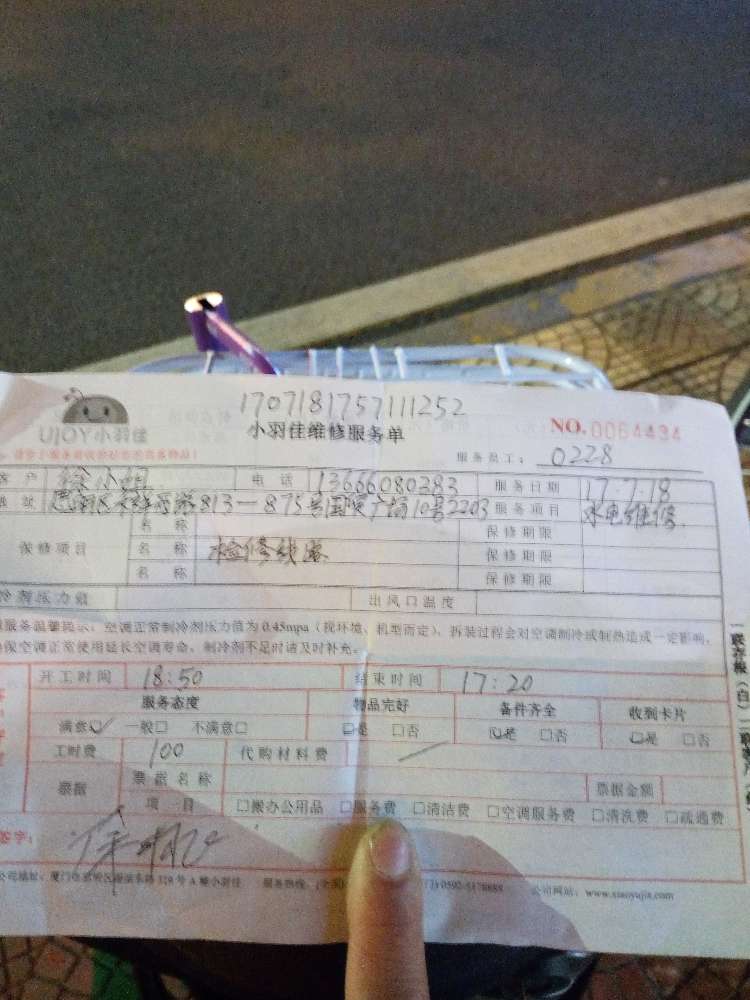 1707181757111252
UJOY小羽佳 小羽佳维修服务单 NO.0064434
服务员工: 0228
客户 徐小姐 电话 13666080283 服务日期 17.7.18
地址 813—875号国贸广场10号2203 服务项目 水电维修
名称 保修期限
保修项目 名称 检修线路 保修期限
名称 保修期限
冷剂压力值 出风口温度
服务温馨提示:空调正常制冷剂压力值为0.45mpa(视环境、机型而定),拆装过程会对空调制冷或制热造成一定影响,
保空调正常使用延长空调寿命,制冷剂不足时请及时补充。
开工时间 18:50 结束时间 17:20
服务态度 物品完好 备件齐全 收到卡片
满意☑ 一般□ 不满意□ ☑是 □否 ☑是 □否 ☑是 □否
工时费 100 代购材料费
票据 票据名称 票据金额
项目 □搬办公用品 □服务费 □清洁费 □空调服务费 □清洗费 □疏通费
签字:
公司地址: 328号A幢小羽佳 服务热线: 公司网站: www.xiaoyujia.com